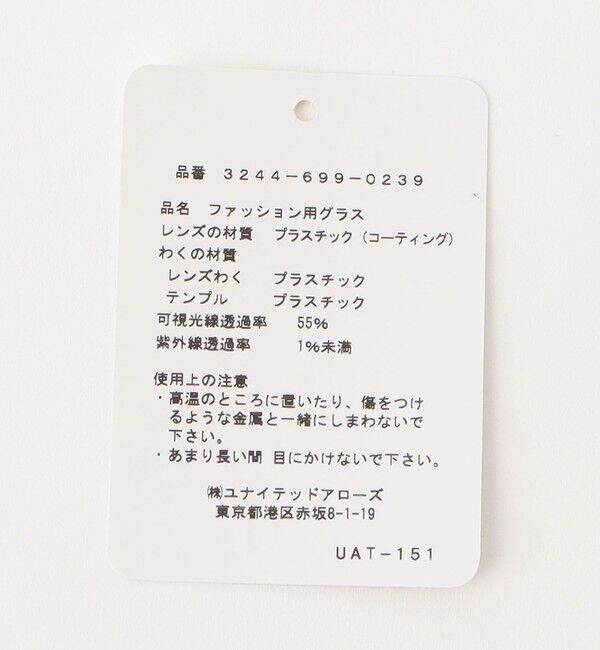 品番 3244-699-0239
品名 ファッション用グラス
レンズの材質 プラスチック(コーティング)
わくの材質
レンズわく プラスチック
テンプル プラスチック
可視光線透過率 55%
紫外線透過率 1%未満
使用上の注意
・高温のところに置いたり、傷をつけ
るような金属と一緒にしまわないで
下さい。
・あまり長い間 目にかけないで下さい。
㈱ユナイテッドアローズ
東京都港区赤坂8-1-19
UAT-151